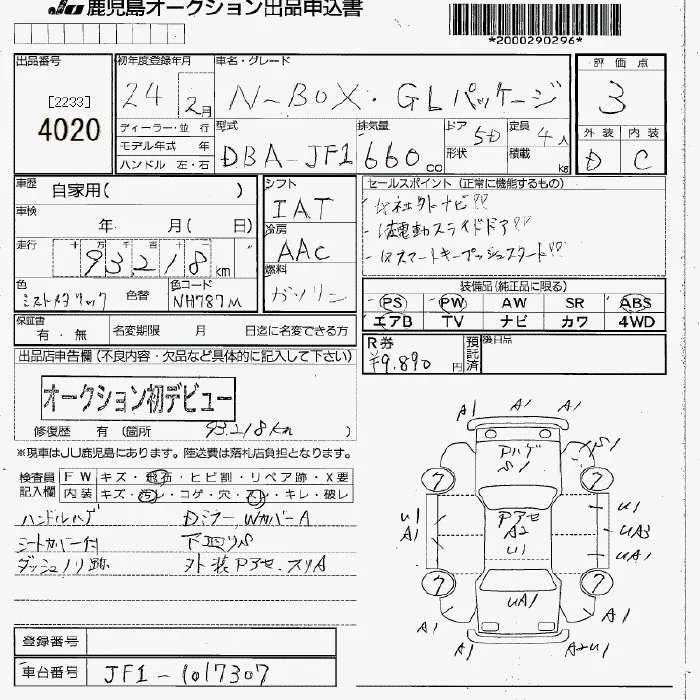 JU 鹿児島オークション出品申込書
*2000290296*
出品番号
[2233]
4020
初年度登録年月
24 2月
車名・グレード
N-BOX・GLパッケージ
評価点
3
外装 内装
D C
ディーラー・並行
モデル年式 年
ハンドル 左・右
型式
DBA-JF1
排気量
660 cc
ドア 5D
形状
定員 4人
積載 kg
車歴 自家用( )
車検
年 月( 日)
走行
十万 万 千 百 十
93,218 km
色
色替
色コード
NH787M
シフト
IAT
冷房
AAC
燃料
ガソリン
セールスポイント (正常に機能するもの)
社外ナビ!!
電動スライドドア!!
スマートキープッシュスタート!!
装備品(純正品に限る)
PS PW AW SR ABS
エアB TV ナビ カワ 4WD
保証書
有・無
名変期限 月 日迄に名変できる方
R券
¥9,890 円
預託済
後日品
出品店申告欄(不良内容・欠品など具体的に記入して下さい)
オークション初デビュー
修復歴 有 (箇所 93,218km
※現車はJU鹿児島にあります。陸送費は落札店負担となります。
検査員記入欄
FW キズ・飛石・ヒビ割・リペア跡・X要
内装 キズ・汚レ・コゲ・穴・スレ・キレ・破レ
ハンドルハゲ DミラーWカバーA
シートカバー付 下回りS
ダッシュノリ跡 外装Pアセ.スリA
登録番号
車台番号 JF1-1017307
A1 A1 A1
Pハゲ
S1
S1
7 7
U1
A1
Pアセ
A2
U1
U1
UA3
UA1
7 7
UA1
A1 A1
A1 A2U1